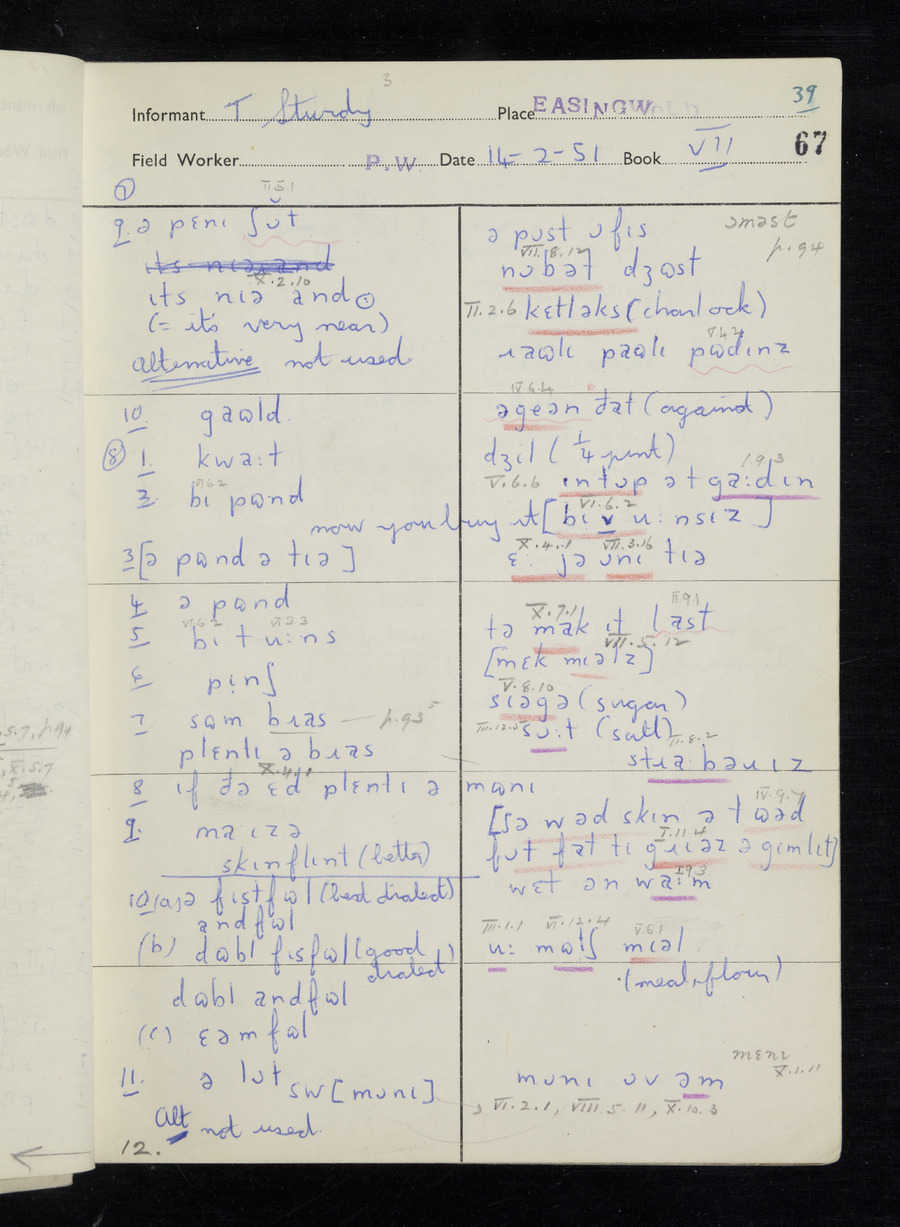 3
39
Informant T Sturdy Place EASINGWOLD
67
Field Worker P.W. Date 14-2-51 Book VII
⑦ II 5.1
9. ə pɛnɪ ʃɒt
its nɪə and
X.2.10
ɪts nɪə and ⊙
(= it's very near)
Alternative not used
10. gaωld.
⑧ 1. kwa:t
VI 6 2
2. bɪ pωnd
now you buy it [bɪ v u:nsɪz]
3 [ə pωnd ə tɪə]
4 ə pωnd
VI.6.2 VI 3 3
5 bɪ t u:ns
6 pɪnʃ
7 sωm bɪas — p.93⁵
plɛntɪ ə bɪas
X.4.11
8 ɪf ðə ɛd plɛntɪ ə mωnɪ
9. maɪzə
skinflint (better)
10 (a) ə fɪstfωl (best dialect)
andfωl
(b) dωbl fɪsfωl (good dialect)
dωbl andfωl
(c) ɛəmfωl
11. ə lɒt sw [mɒnɪ]
Alt not used.
12.
ə pɒst ɒfɪs əməst
p.94
VII.8.12
nɒbət dʒωst
II.2.6 kɛtləks (charlock)
V.4.2
ɪawlɪ pawlɪ pωdɪnz
IV.6.4
əgeən ðat (against)
dʒɪl (¼ pint)
I.9.3
V.6.6 ɪntɒp ət ga:dɪn
VI.6.2
X.4.1 VII.3.16
ɛ: jə ɒnɪ tɪə
X.7.1 II 9.1
tə mak ɪt last
VII.5.12
[mɛk mɪəlz]
V.8.10
sɪəgə (sugar)
III.12.5 sɒ:t (salt) II.8.2
stɪa bəɪɪz
IV.9.7
[ʃə wəd skɪn ə tωəd
I.11.4
fɒt fat tɪ gɪɪəz ə gimlit]
I 9 3
wɛt ən wa:m
III.1.1 VI.12.4 V.6.1
u: mωtʃ mɪəl
(meal, flour)
mɛnɪ
X.1.11
mɒnɪ ɒv əm
VI.2.1, VIII.5.11, X.10.3